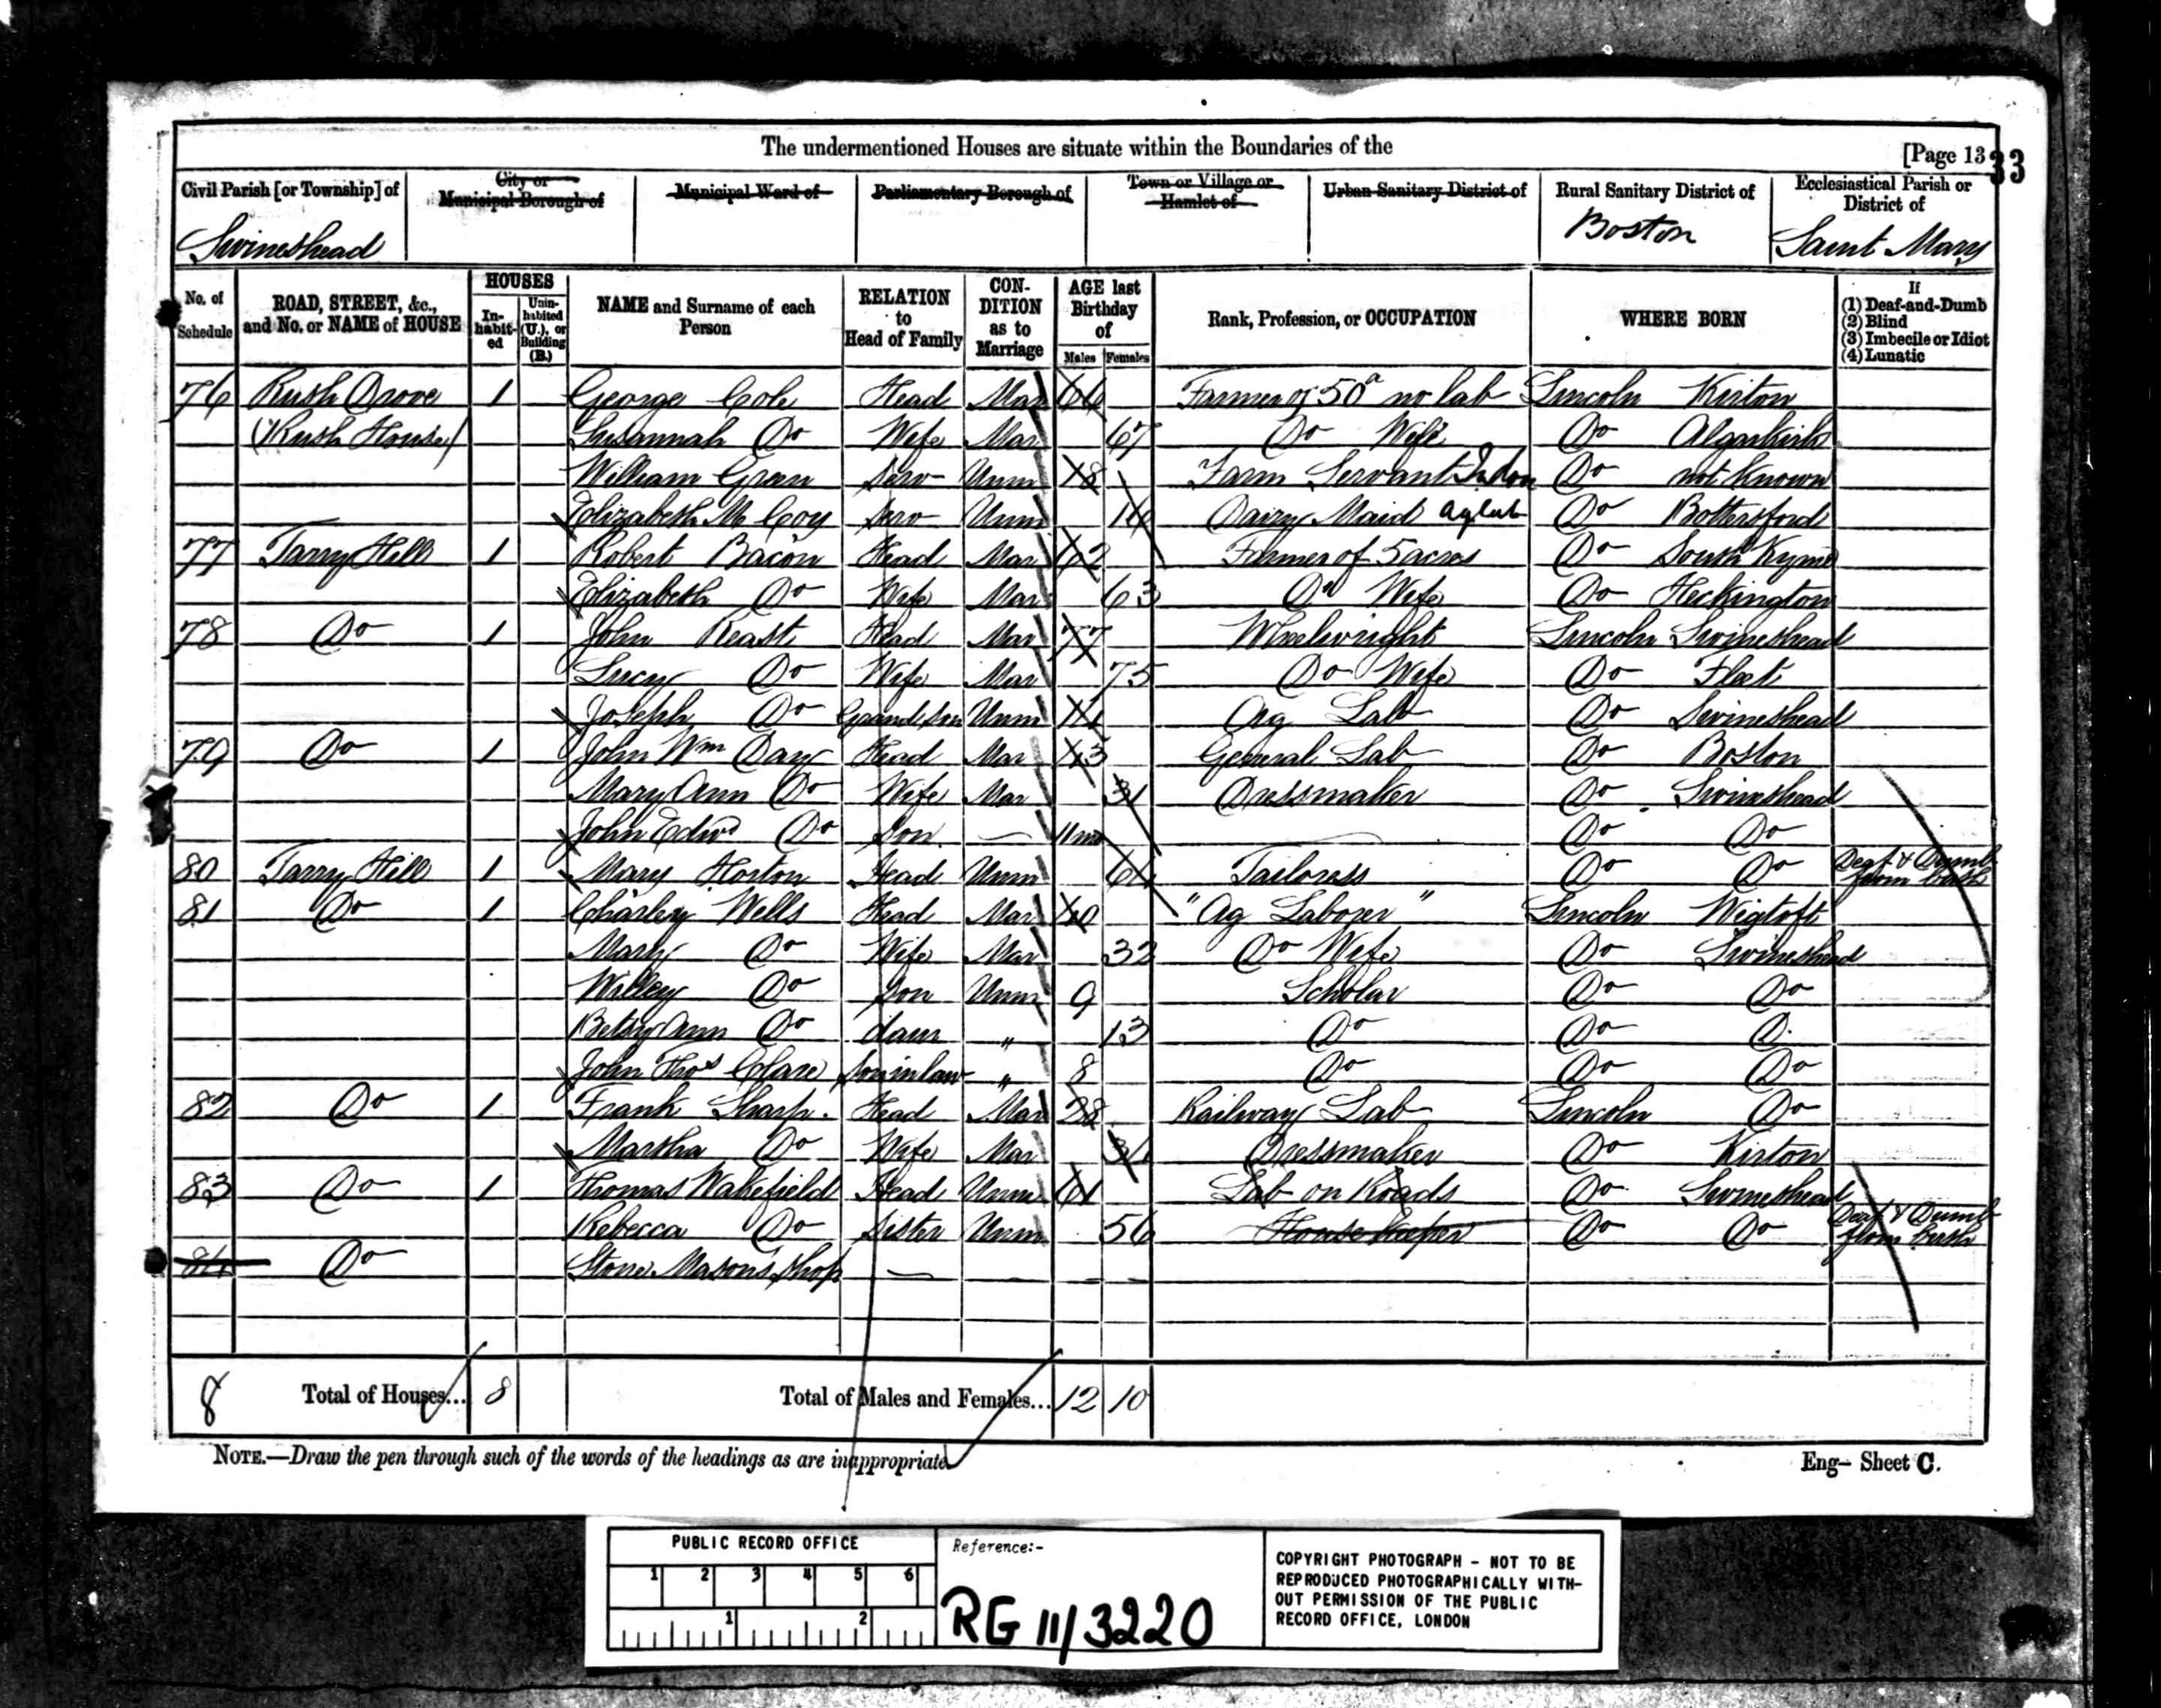 The undermentioned Houses are situate within the Boundaries of the
[Page 13
33
Civil Parish [or Township] of
City or Municipal Borough of
Municipal Ward of
Parliamentary Borough of
Town or Village or Hamlet of
Urban Sanitary District of
Rural Sanitary District of
Ecclesiastical Parish or District of
Swineshead
Boston
Saint Mary
No. of Schedule
ROAD, STREET, &c., and No. or NAME of HOUSE
HOUSES
In-habit-ed
Unin-habited (U.), or Building (B.)
NAME and Surname of each Person
RELATION to Head of Family
CON-DITION as to Marriage
AGE last Birthday of
Males
Females
Rank, Profession, or OCCUPATION
WHERE BORN
If
(1) Deaf-and-Dumb
(2) Blind
(3) Imbecile or Idiot
(4) Lunatic
76 Rush Drove 1 George Cole Head Mar 66 Farmer of 50a no lab Lincoln Kirton
(Rush House) Susannah Do Wife Mar 67 Do Wife Do Algarkirk
William Green Serv Unm 18 Farm Servant Indoor Do not Known
Elizabeth M Coy Serv Unm 16 Dairy Maid ag lab Do Bottersford
77 Tarry Hill 1 Robert Bacon Head Mar 62 Farmer of 5 acres Do South Kyme
Elizabeth Do Wife Mar 63 Do Wife Do Heckington
78 Do 1 John Reast Head Mar 77 Wheelwright Lincoln Swineshead
Lucy Do Wife Mar 75 Do Wife Do Fleet
Joseph Do Grandson Unm Ag Lab Do Swineshead
79 Do 1 John Wm Day Head Mar General Lab Do Boston
Mary Ann Do Wife Mar 31 Dressmaker Do Swineshead
John Edwd Do Son — 11 mo Do Do
80 Tarry Hill 1 Mary Horton Head Unm Tailoress Do Do Deaf & Dumb from birth
81 Do 1 Charley Wells Head Mar "Ag Laborer" Lincoln Wigtoft
Mary Do Wife Mar 32 Do Wife Do Swineshead
Willey Do Son Unm 9 Scholar Do Do
Betsy Ann Do daur " 13 Do Do D.
John Thos Clare Son in law " 8 Do Do Do
82 Do 1 Frank Sharp. Head Mar 28 Railway Lab Lincoln Do
Martha Do Wife Mar 31 Dressmaker Do Kirton
83 Do 1 Thomas Wakefield Head Unm 61 Lab on Roads Do Swineshead
Rebecca Do Sister Unm 56 House keeper Do Do Deaf & Dumb from birth
84 Do Stone Mason's Shop —
8 Total of Houses... 8 Total of Males and Females... 12 10
NOTE.—Draw the pen through such of the words of the headings as are inappropriate.
Eng— Sheet C.
PUBLIC RECORD OFFICE
1 2 3 4 5 6
1 2
Reference:-
RG 11/3220
COPYRIGHT PHOTOGRAPH - NOT TO BE
REPRODUCED PHOTOGRAPHICALLY WITH-
OUT PERMISSION OF THE PUBLIC
RECORD OFFICE, LONDON